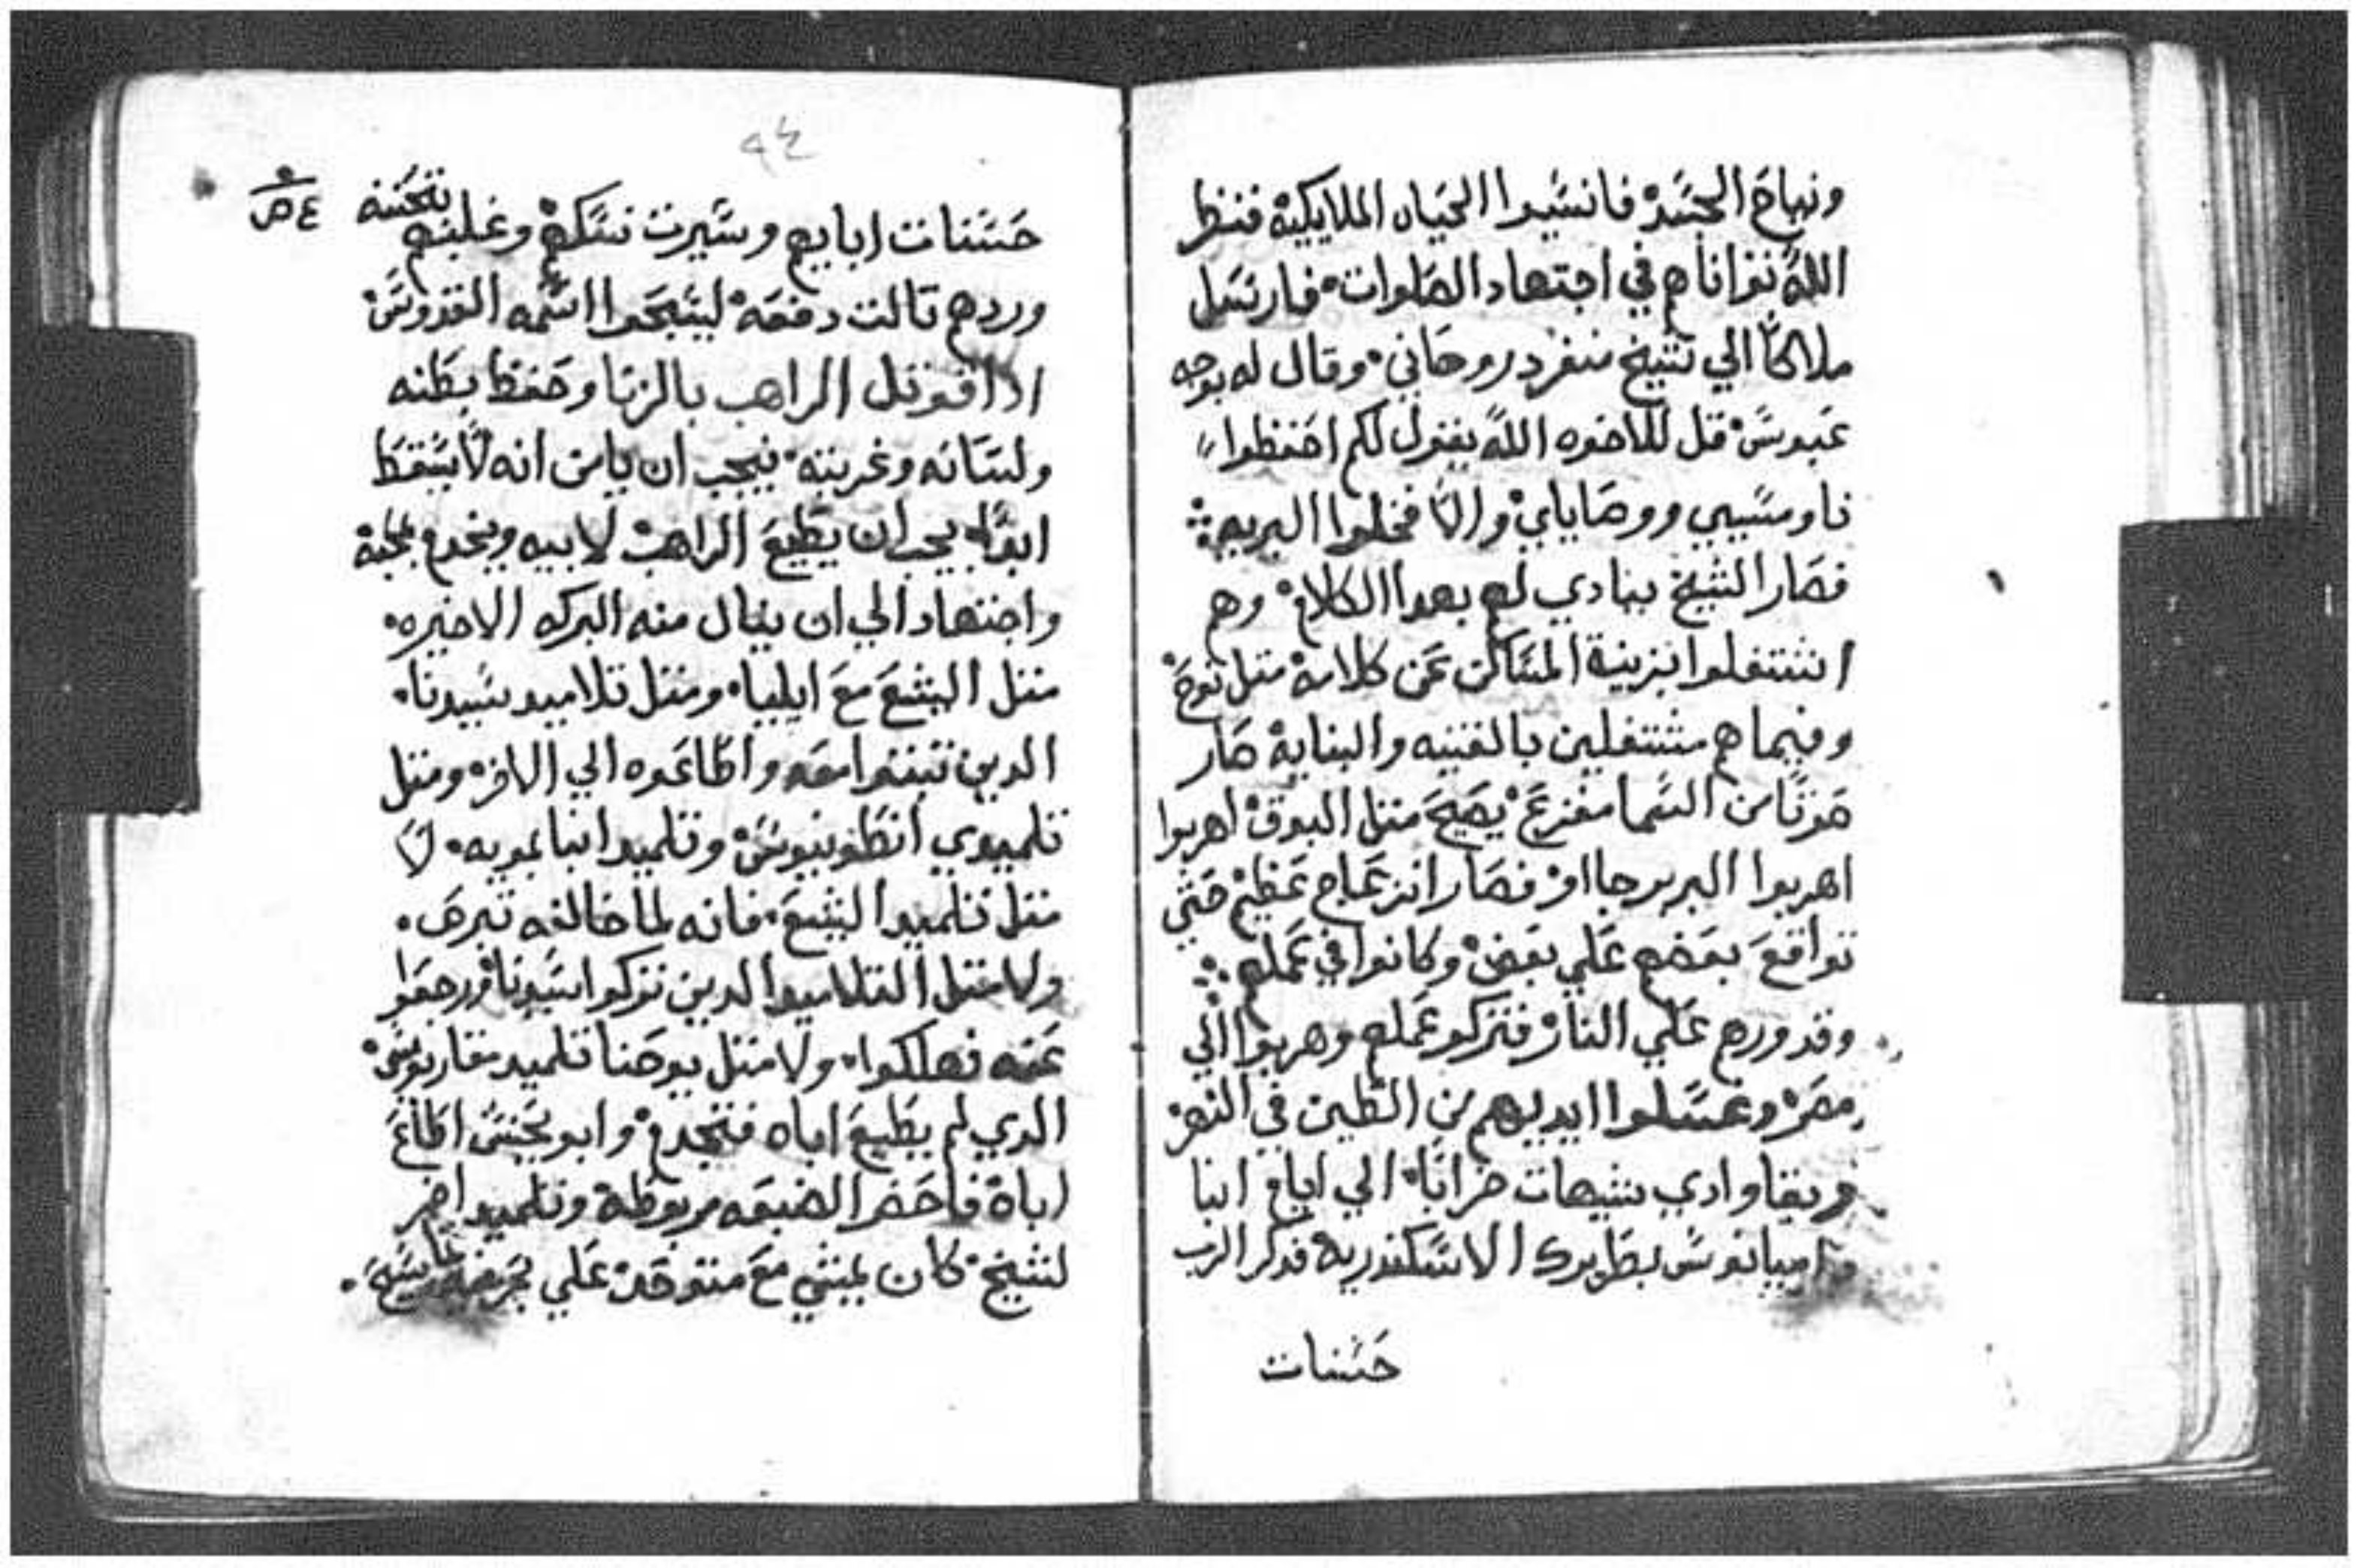 ونياح الجسد فانسيوا الحياه الملايكية فنظر
الله تواناهم في اجتهاد الصلوات فارسل
ملاكا الي شيخ منفرد روحاني وقال له بوجه
عبوس قل للاخوه الله يقول لكم احفظوا
ناموسي ووصاياي والا فخلوا البريه
فصار الشيخ ينادي لهم بهدا الكلام وهم
اشتغلوا بزينة المساكن عن كلامه متل نوح
وفيما هم مشتغلين بالقنيه والبناية صار
صوتا من السما مفزع يصيح متل البوق اهربوا
اهربوا البربر جااو فصار انزعاج عظيم حتي
تواقع بعضهم علي بعض وكانوا في عملهم
وقدورهم علي النار فتركو عملهم وهربوا الي
مصر وغسلوا ايديهم من الطين في النهر
وبقا وادي شيهات خرابا الي ايام انبا
داميانوس بطريرك الاسكندرية فدكر الرب
حسنات
٩٤
٩٤ ص
حسنات ابايهم وسيرت نسكهم وغلبتهم بتحننه
وردهم تالت دفعه ليسبحوا اسمه القدوس
ادا قوتل الراهب بالزنا وحفظ بطنه
ولسانه وغربته فيجب ان يامن انه لا يسقط
ابدا يجب ان يطيع الراهب لابيه ويخدم بمحبة
واجتهاد الي ان ينال منه البركه الاخيره
متل اليشع مع ايليا ومتل تلاميد سيدنا
الدين تبتوا معه واطاعوه الي الاخر ومتل
تلميدي انطونيوس وتلميد انبا بمويه لا
متل تلميد اليشع فانه لما خالفه تبرص
ولا متل التلاميد الدين تركوا سيدنا ورجعوا
عنه فهلكوا ولا متل يوحنا تلميد مقاريوس
الدي لم يطيع اباه فتجدم وابو يحنس اطاع
اباه فاحضر الضبعه مربوطة وتلميد اخر
لشيخ كان يمشي مع متوحد علي